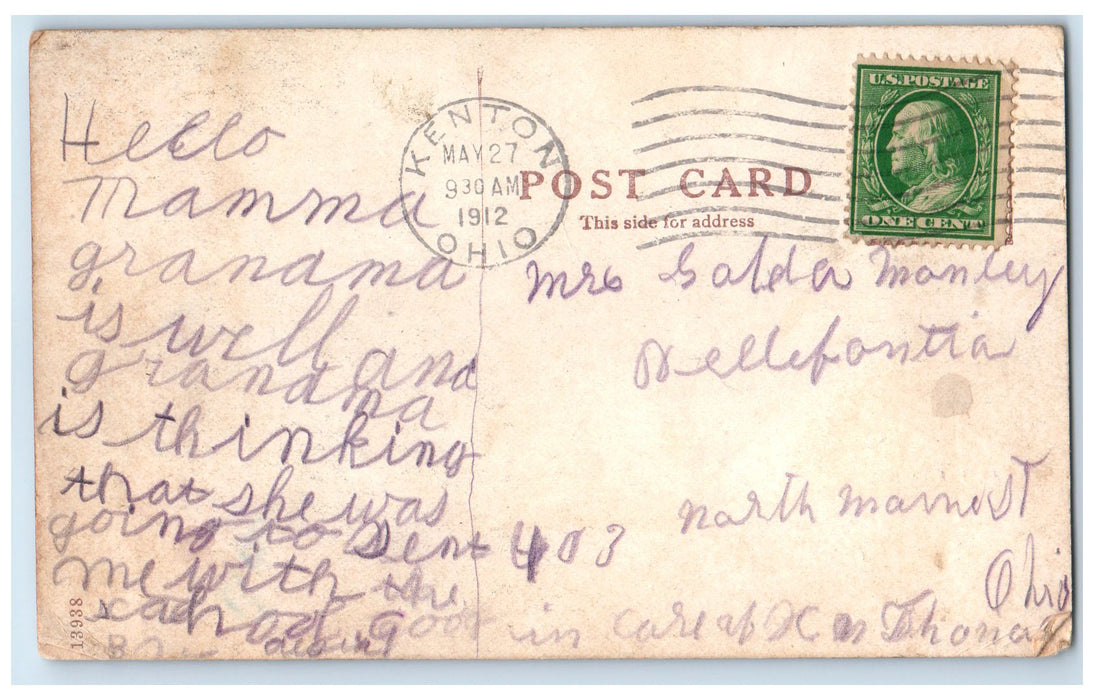 Hello
Mamma
grandma
is well and
grandma
is thinking
that she was
going to sent
me with the
good
13938
KENTON
MAY 27
9 30 AM
1912
OHIO
U.S. POSTAGE
ONE CENT
POST CARD
This side for address
Mrs Golda Manley
Bellefontia
403 north main st
Ohio
in care of